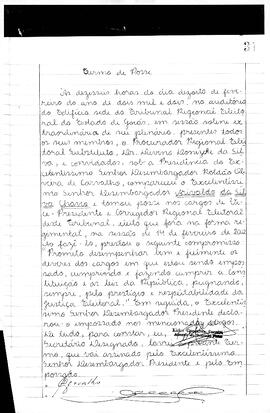 31
Termo de Posse
Às dezesseis horas do dia dezoito de feve-
reiro do ano de dois mil e dois, no auditório
do Edifício sede do Tribunal Regional Eleito-
ral do Estado de Goiás, em sessão solene ex-
traordinária de seu plenário, presentes todos
os seus membros, o Procurador Regional Elei-
toral Substituto,
va, e convidados, sob a Presidência do Ex-
celentíssimo Senhor Desembargador Roldão Oli-
veira de Carvalho, compareceu o Excelentíssi-
mo Senhor Desembargador da Sil-
va e tomou posse nos cargos de Vice-
-Presidente e Corregedor Regional Eleitoral
deste Tribunal, eleito que fora na forma re-
gimental, na sessão de 14 de fevereiro de 2002.
Ao fazê-lo, prestou o seguinte compromisso:
"Prometo desempenhar bem e fielmente os
deveres dos cargos em que estou sendo empos-
sado, cumprindo e fazendo cumprir a Cons-
tituição e as leis da República, pugnando,
sempre, pelo prestígio e respeitabilidade da
Justiça Eleitoral." Em seguida, o Excelentís-
simo Senhor Desembargador Presidente decla-
rou o empossado nos mencionados cargos.
Do que tudo, para constar, eu,
Secretário Designado, lavrei o presente Ter-
mo, que vai assinado pelo Excelentíssimo
Senhor Desembargador Presidente e pelo Em-
possado.